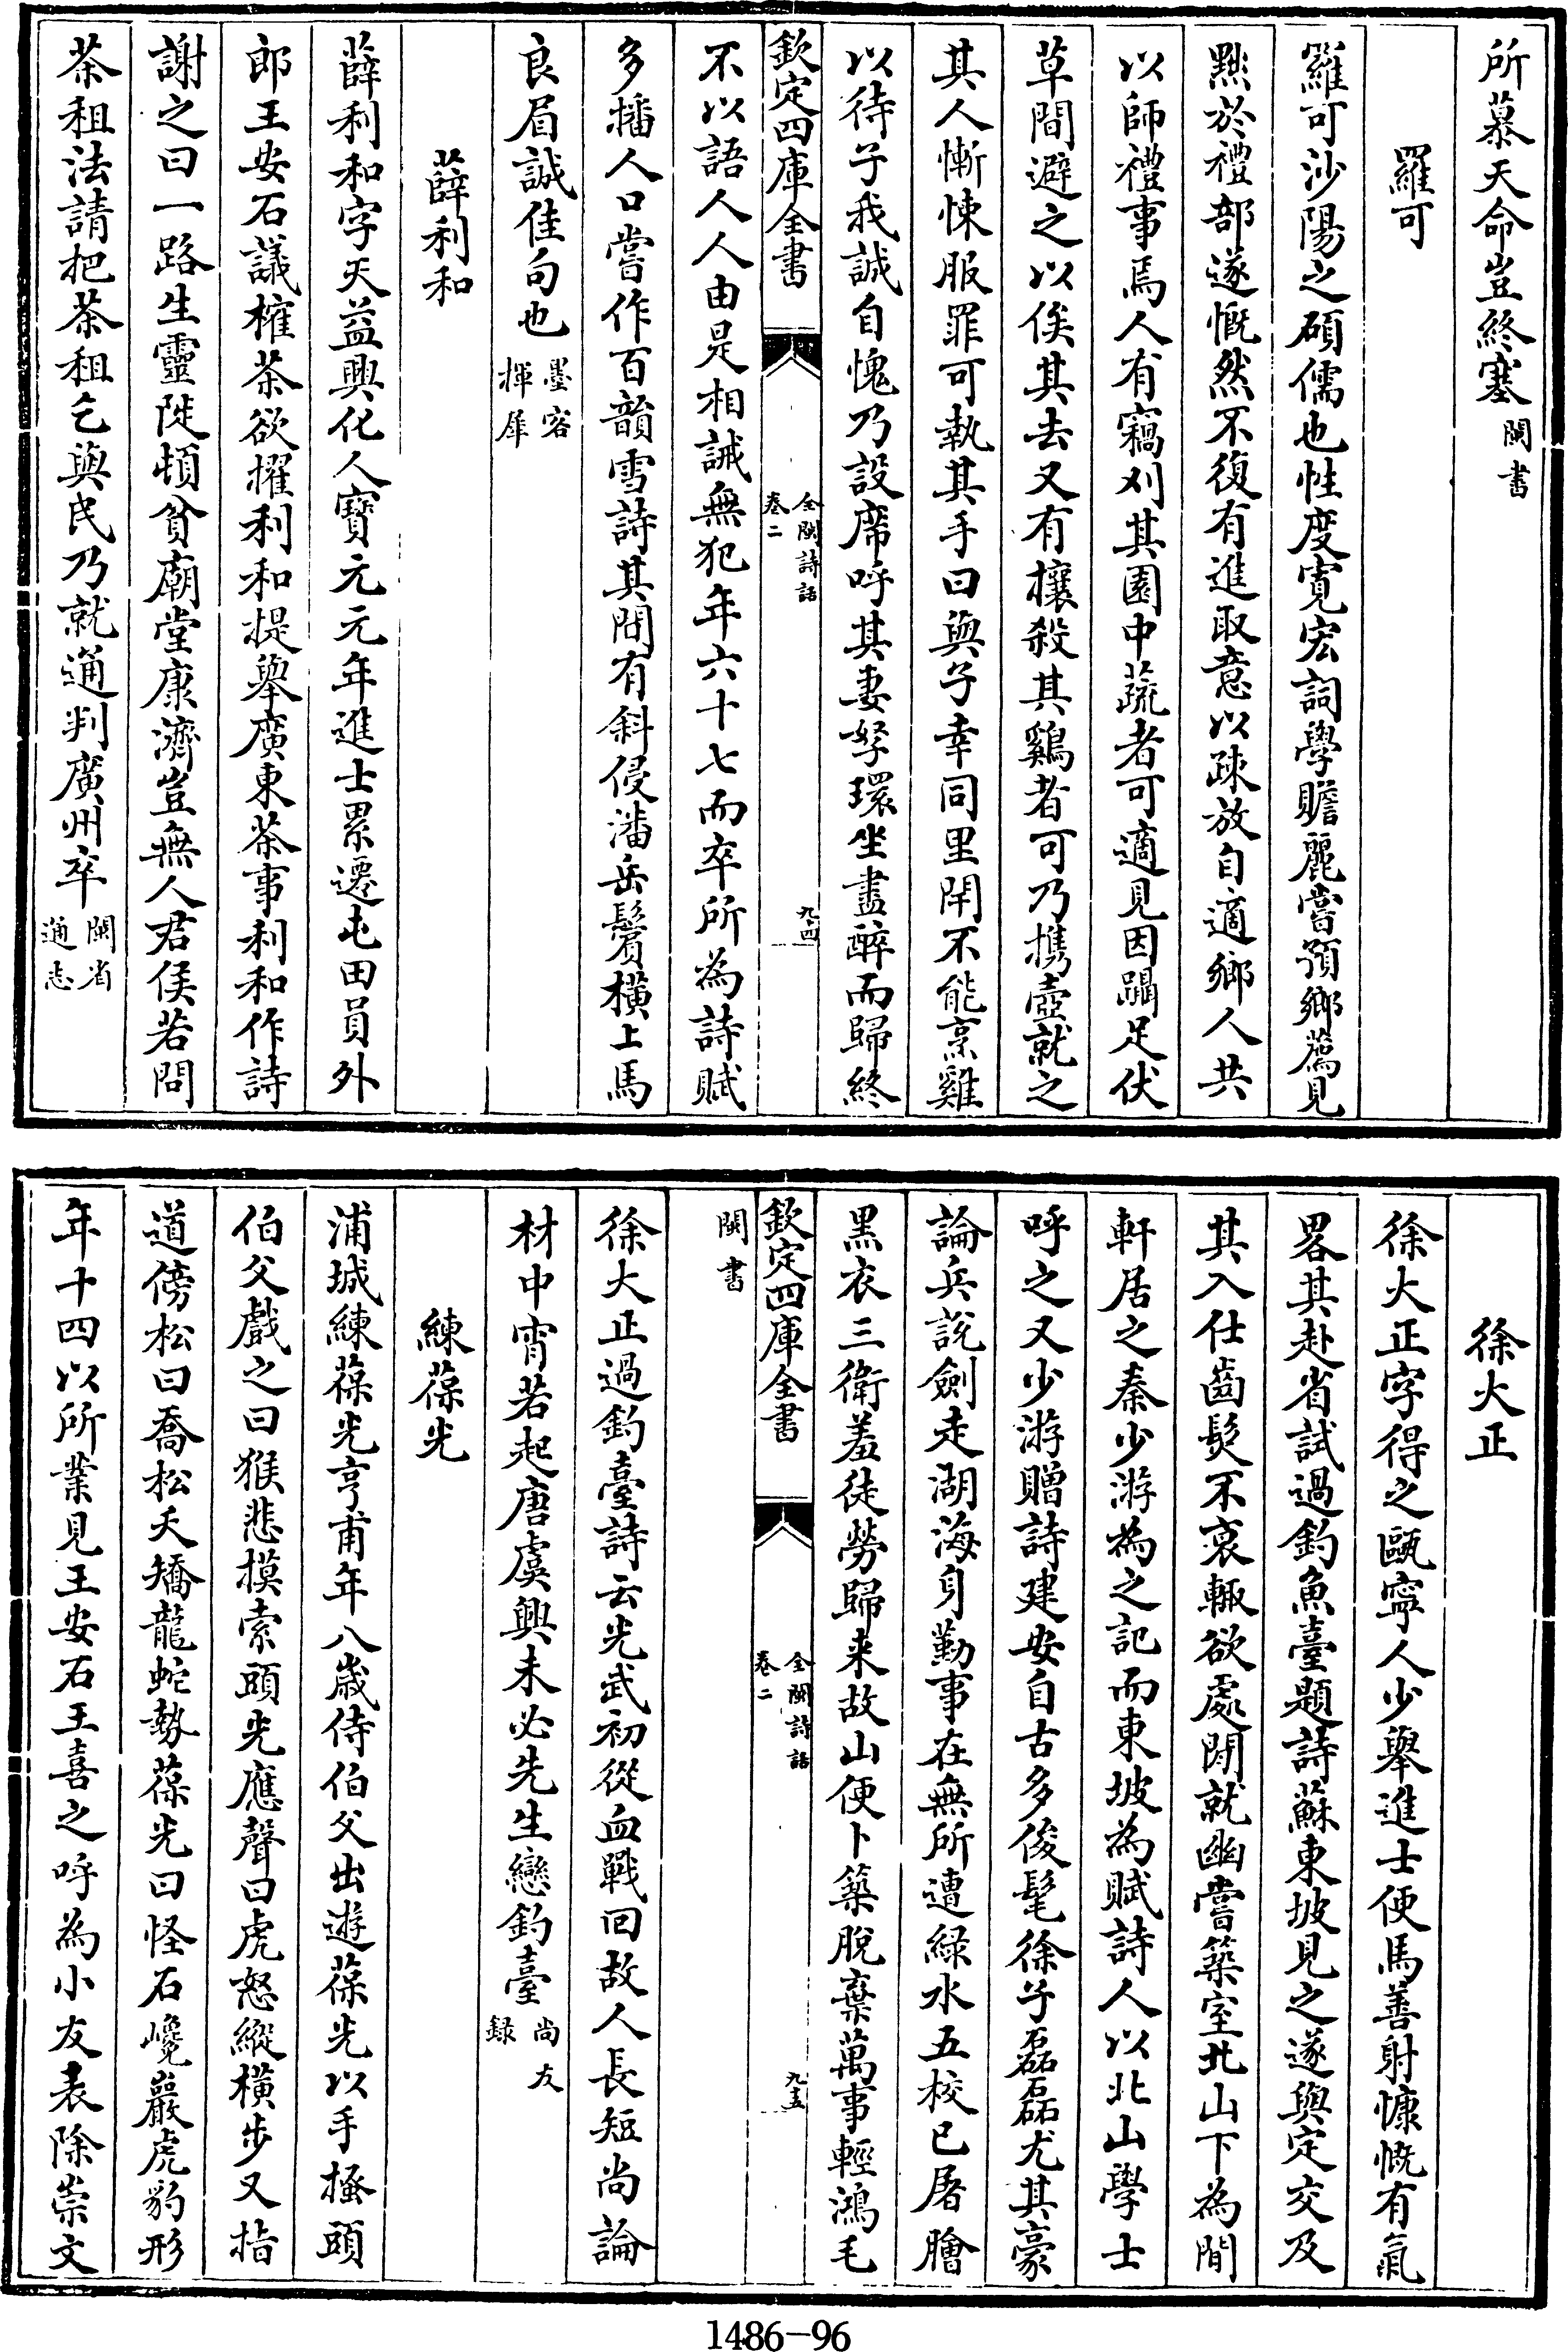 所慕天命豈終塞閩書
羅可
羅可沙陽之碩儒也性度寛宏詞學贍麗嘗預鄉薦見
黜於禮部遂慨然不復有進取意以疎放自適鄉人共
以師禮事焉人有竊刈其園中蔬者可適見因躡足伏
草間避之以俟其去又有攘殺其鷄者可乃攜壺就之
其人慚悚服罪可執其手曰與子幸同里閈不能烹雞
以待子我誠自愧乃設席呼其妻孥環坐盡醉而歸終
欽定四庫全書
全閩詩話
卷二
九四
不以語人人由是相誡無犯年六十七而卒所為詩賦
多播人口嘗作百韻雪詩其間有斜侵潘岳鬢橫上馬
良眉誠佳句也墨客
揮犀
薛利和
薛利和字天益興化人寶元元年進士累遷屯田員外
郎王安石議榷茶欲擢利和提舉廣東茶事利和作詩
謝之曰一路生靈陡頓貧廟堂康濟豈無人君侯若問
茶租法請把茶租乞與民乃就通判廣州卒閩省
通志
徐大正
徐大正字得之甌寧人少舉進士便馬善射慷慨有氣
畧其赴省試過釣魚臺題詩蘇東坡見之遂與定交及
其入仕齒髮不衰輒欲處閒就幽嘗築室北山下為閒
軒居之秦少游為之記而東坡為賦詩人以北山學士
呼之又少游贈詩建安自古多俊髦徐子磊磊尤其豪
論兵說劍走湖海身勤事在無所遭綠水五校已屠膾
黑衣三衛羞徒勞歸来故山便卜築脫棄萬事輕鴻毛
欽定四庫全書
全閩詩話
卷二
九五
閩書
徐大正過釣臺詩云光武初從血戰回故人長短尚論
材中宵若起唐虞興未必先生戀釣臺尚友
録
練葆光
浦城練葆光亨甫年八歲侍伯父出遊葆光以手搔頭
伯父戲之曰猴悲摸索頭光應聲曰虎怒縱橫步又指
道傍松曰喬松夭矯龍蛇勢葆光曰怪石巉巖虎豹形
年十四以所業見王安石王喜之呼為小友表除崇文
1486-96